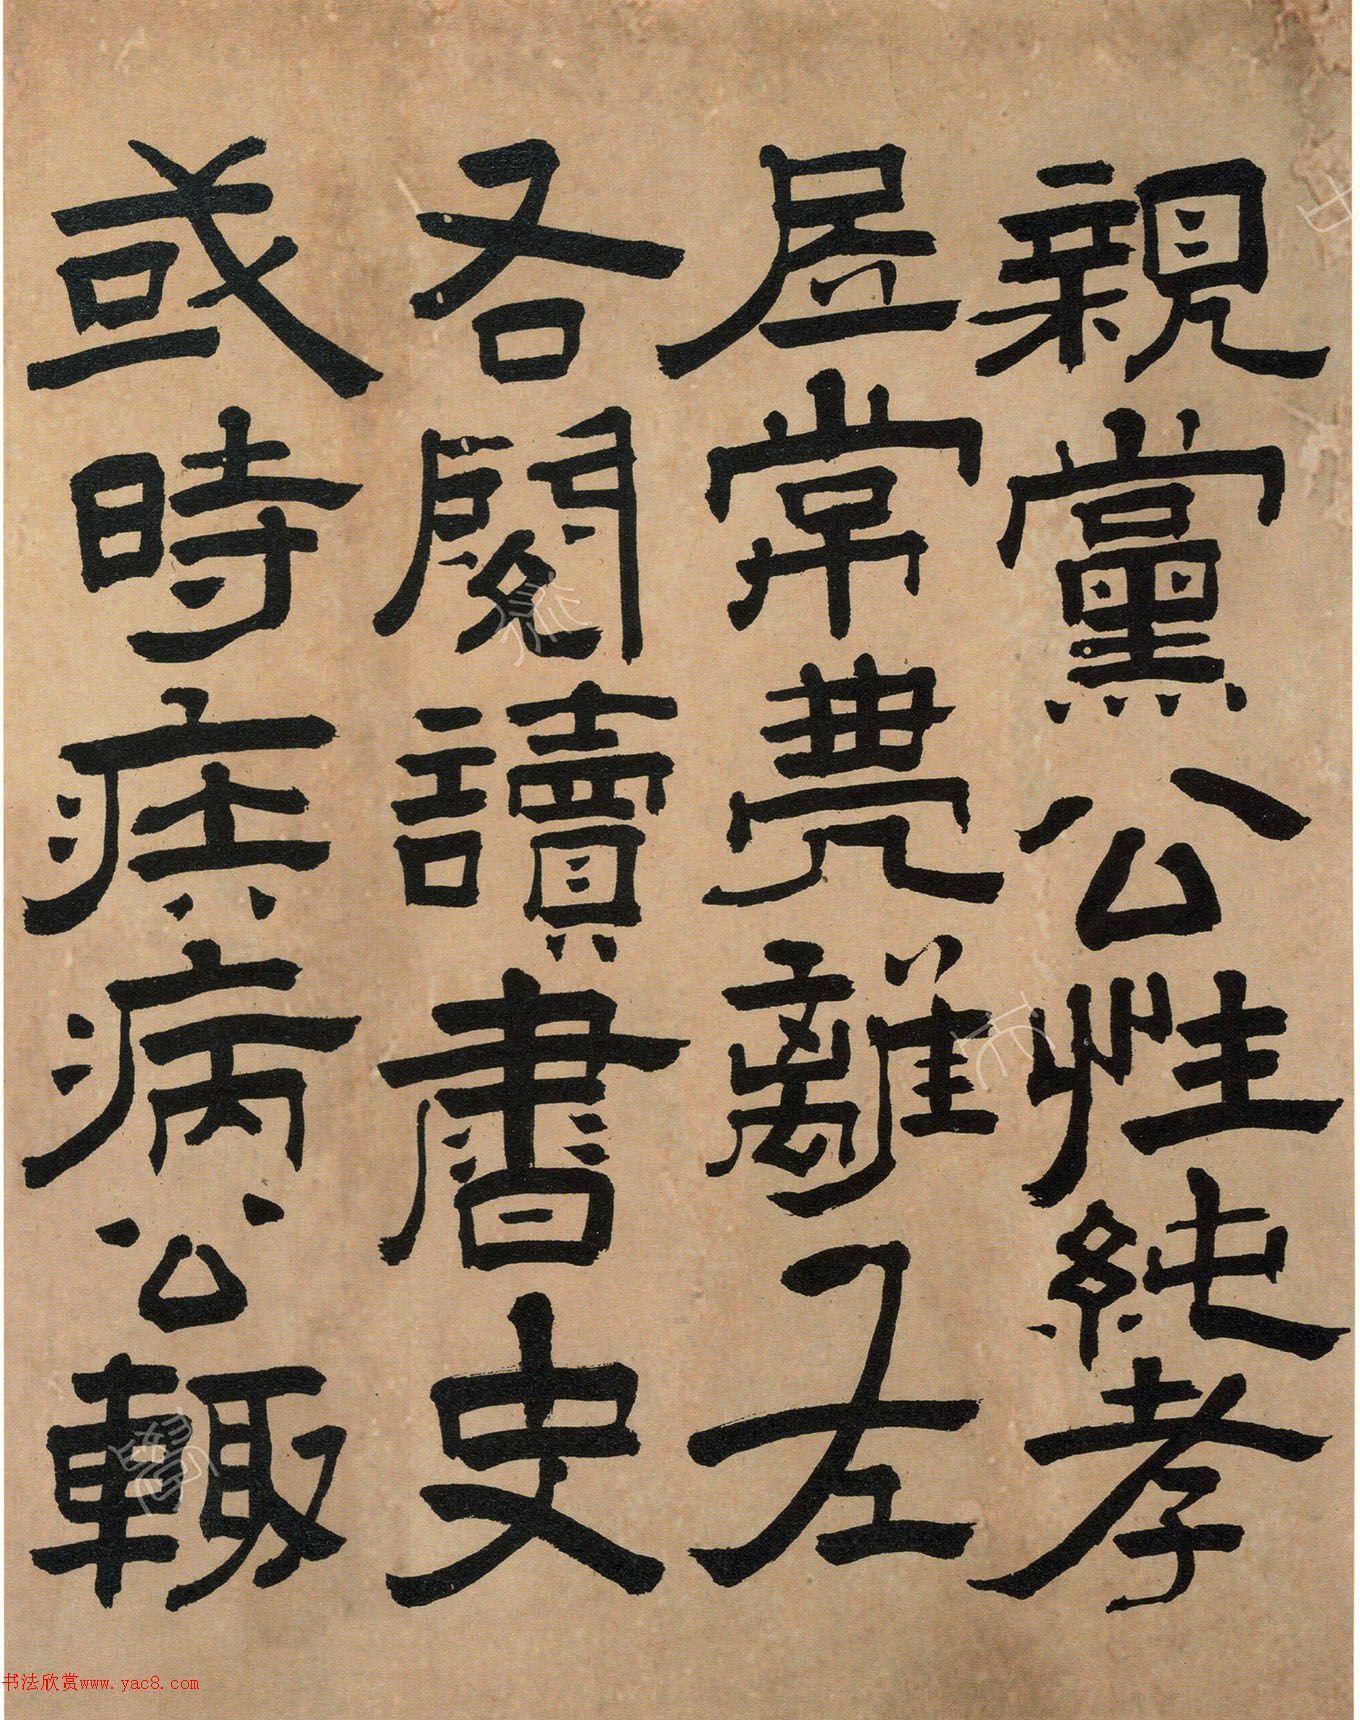 親黨公性純孝
居常離左
右閱讀書史
或時疾病公輒
书法欣赏www.yac8.com